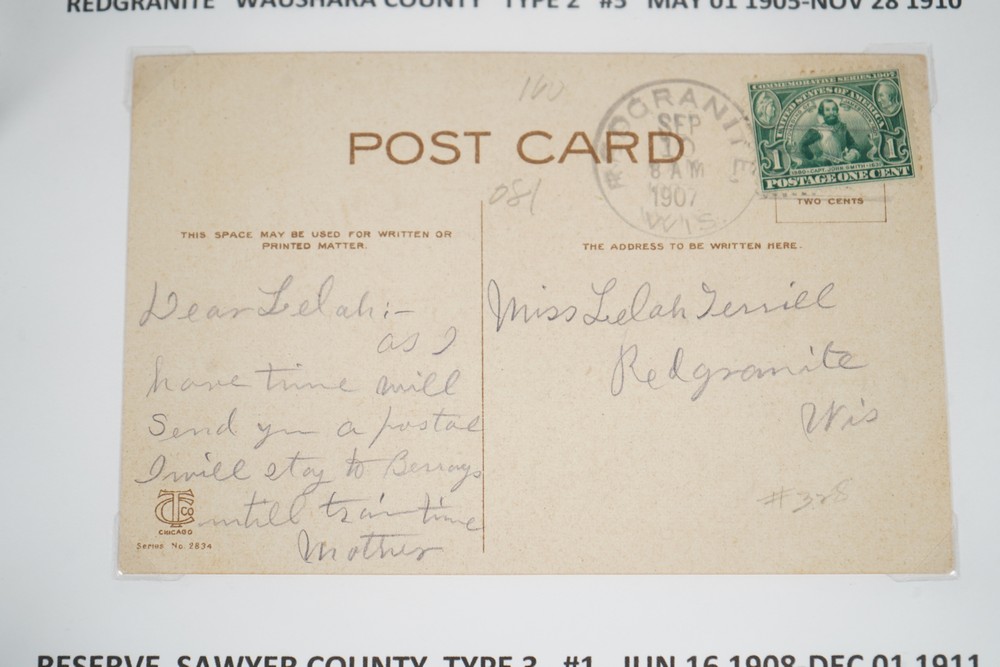 REDGRANITE WAUSHARA COUNTY TYPE 2 #3 MAY 01 1905-NOV 28 1910
160
POST CARD
081
REDGRANITE,
SEP
10
8 AM
1907
WIS.
COMMEMORATIVE SERIES 1907
UNITED STATES OF AMERICA
1 1
1580-CAPT. JOHN SMITH-1631
POSTAGE ONE CENT
TWO CENTS
THIS SPACE MAY BE USED FOR WRITTEN OR
PRINTED MATTER.
THE ADDRESS TO BE WRITTEN HERE.
Dear Lelah:-
as I
have time will
Send you a postal
I will stay to Berrays
untill train time
Mother
Miss Lelah Terrill
Redgranite
Wis
#328
TC CO
CHICAGO
Series No. 2834
RESERVE SAWYER COUNTY TYPE 3 #1 JUN 16 1908-DEC 01 1911